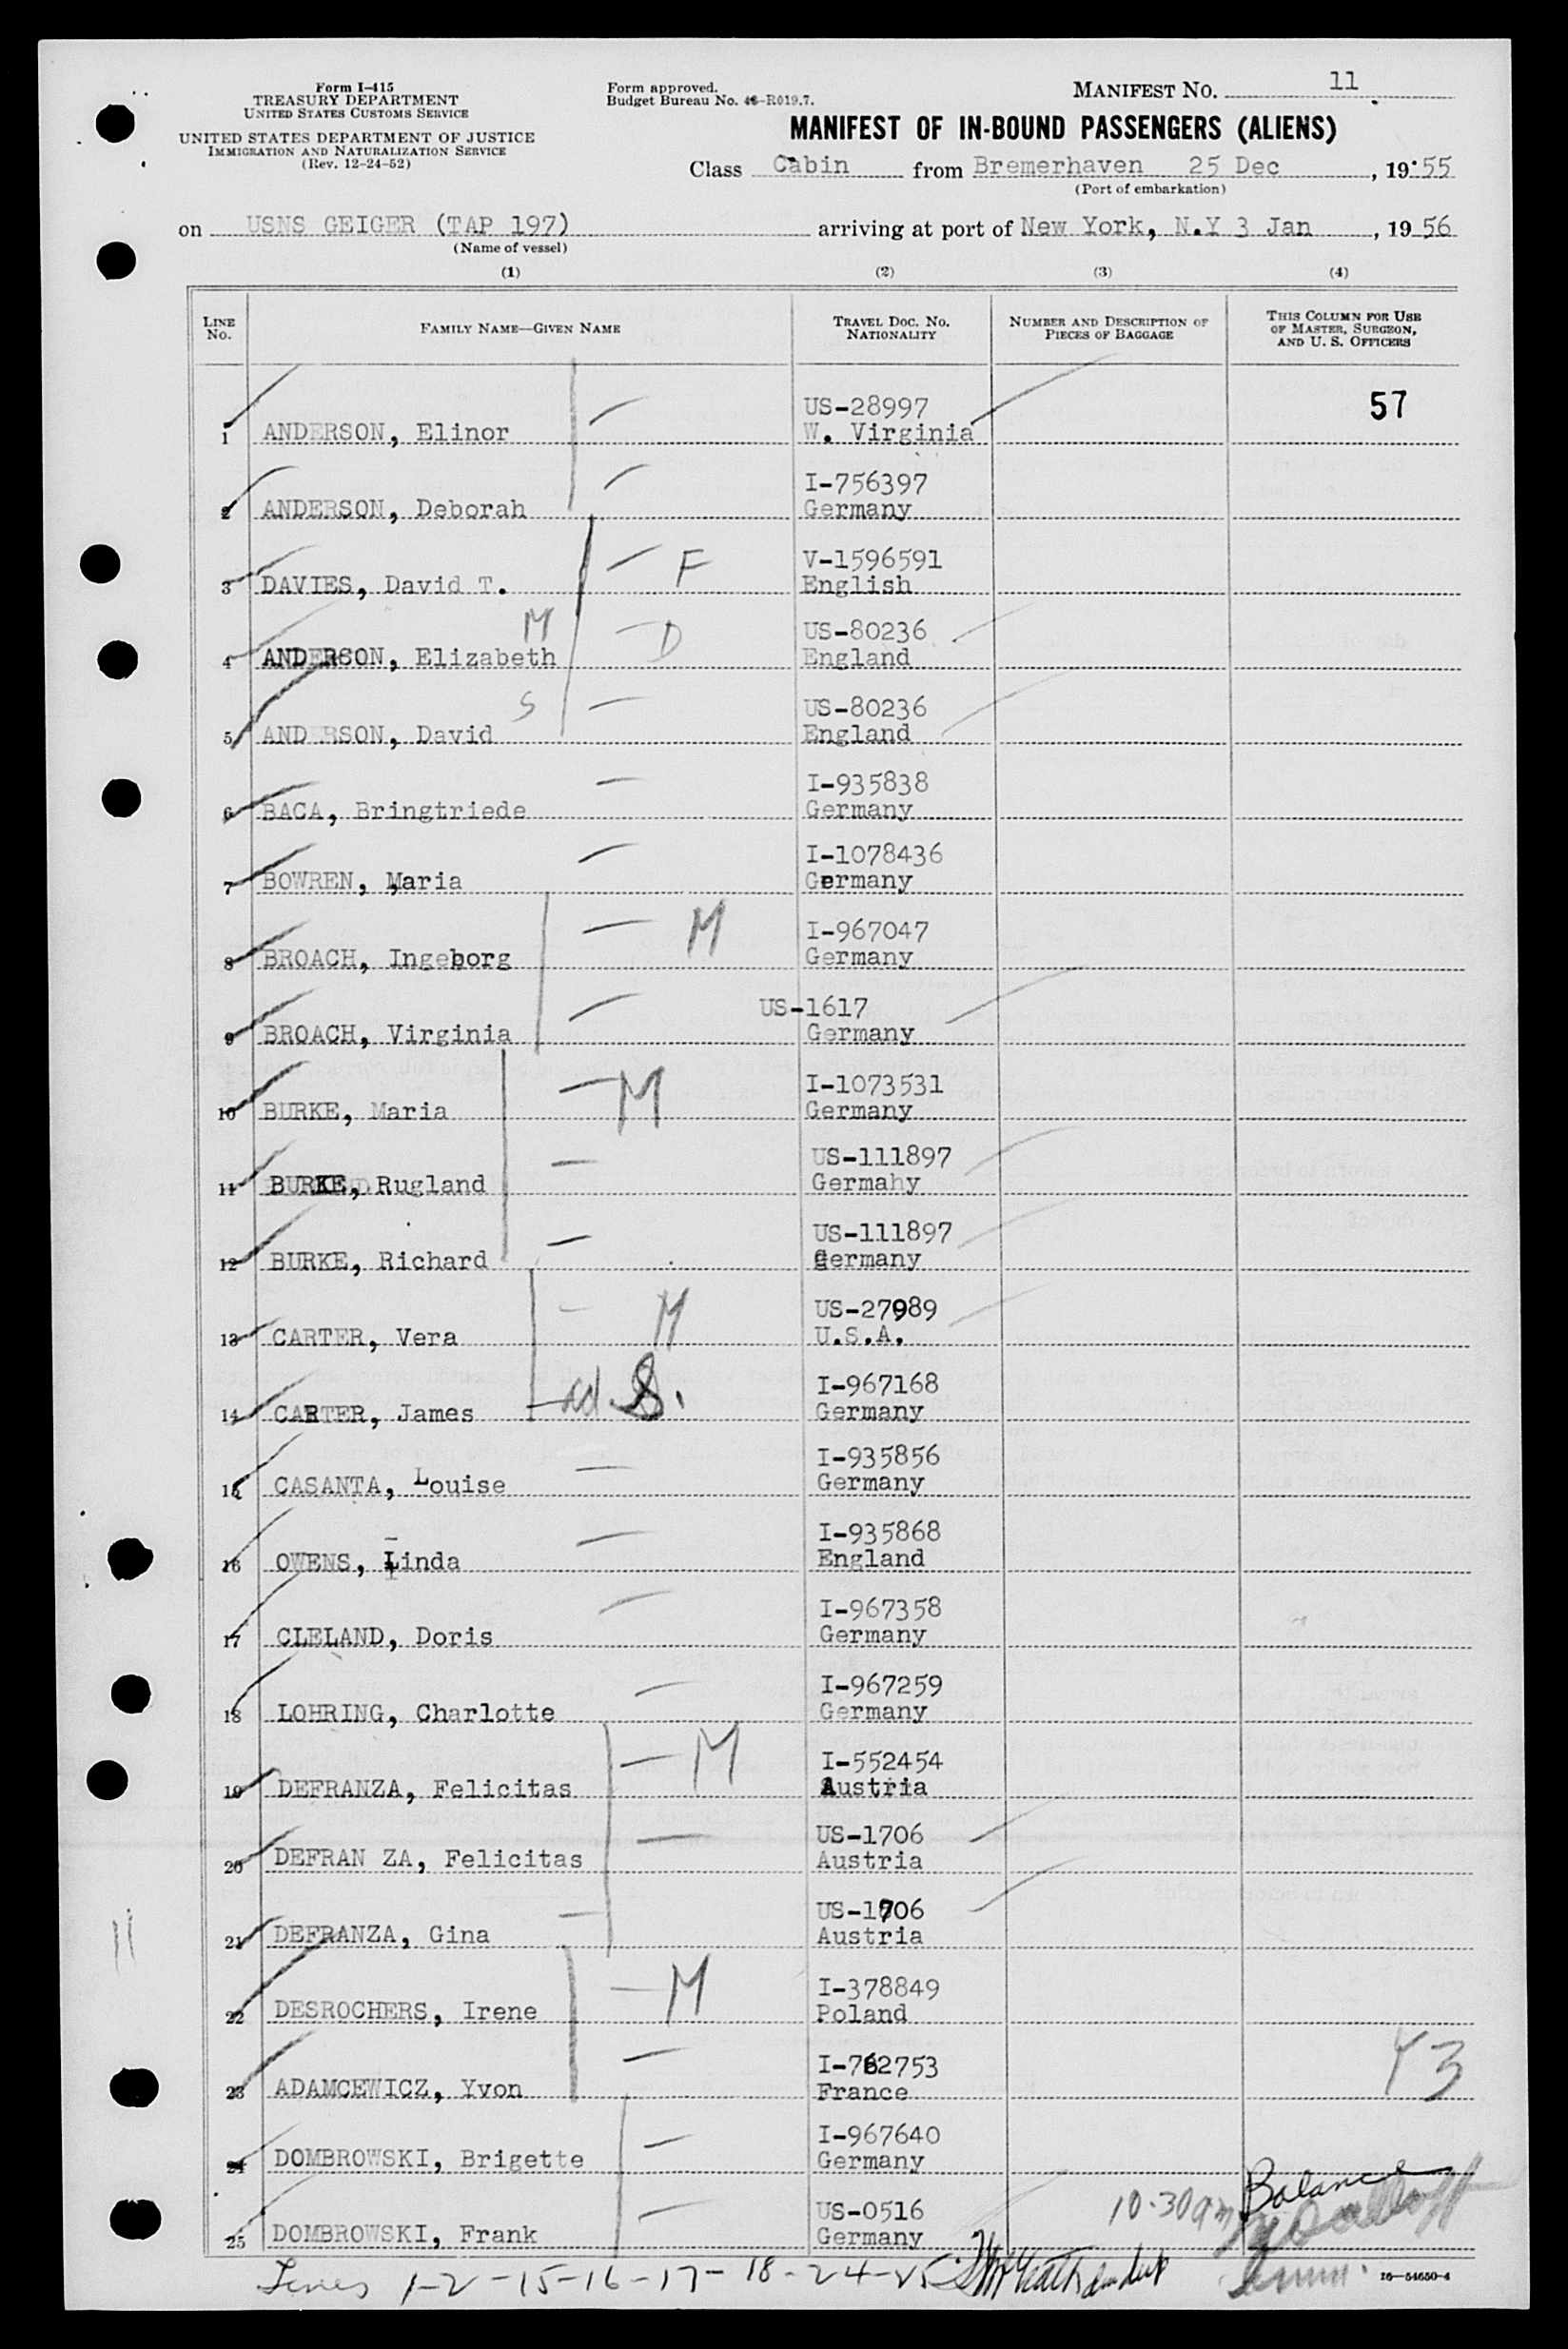 Form I-415
TREASURY DEPARTMENT
UNITED STATES CUSTOMS SERVICE
UNITED STATES DEPARTMENT OF JUSTICE
IMMIGRATION AND NATURALIZATION SERVICE
(Rev. 12-24-52)
Form approved.
Budget Bureau No. 43-R019.7.
MANIFEST NO. 11
MANIFEST OF IN-BOUND PASSENGERS (ALIENS)
Class Cabin from Bremerhaven 25 Dec, 1955
(Port of embarkation)
on USNS GEIGER (TAP 197) arriving at port of New York, N.Y 3 Jan, 1956
(Name of vessel)
(1) (2) (3) (4)
LINE NO. FAMILY NAME—GIVEN NAME TRAVEL DOC. NO. NATIONALITY NUMBER AND DESCRIPTION OF PIECES OF BAGGAGE THIS COLUMN FOR USE OF MASTER, SURGEON, AND U. S. OFFICERS
US-28997 57
1 ANDERSON, Elinor W. Virginia
I-756397
2 ANDERSON, Deborah Germany
V-1596591
3 DAVIES, David T. F English
M US-80236
4 ANDERSON, Elizabeth D England
S US-80236
5 ANDERSON, David England
I-935838
6 BACA, Bringtriede Germany
I-1078436
7 BOWREN, Maria Germany
I-967047
8 BROACH, Ingeborg M Germany
US-1617
9 BROACH, Virginia Germany
I-1073531
10 BURKE, Maria M Germany
US-111897
11 BURKE, Rugland Germahy
US-111897
12 BURKE, Richard Germany
US-27989
13 CARTER, Vera M U.S.A.
I-967168
14 CARTER, James ad S. Germany
I-935856
15 CASANTA, Louise Germany
I-935868
16 OWENS, Linda England
I-967358
17 CLELAND, Doris Germany
I-967259
18 LOHRING, Charlotte Germany
I-552454
19 DEFRANZA, Felicitas M Austria
US-1706
20 DEFRAN ZA, Felicitas Austria
US-1706
21 DEFRANZA, Gina Austria
I-378849
22 DESROCHERS, Irene M Poland
I-762753
23 ADAMCEWICZ, Yvon France Y3
I-967640
24 DOMBROWSKI, Brigette Germany
US-0516 10-30am Balance
25 DOMBROWSKI, Frank Germany
Lines 1-2-15-16-17-18-24-25
16—54650-4
11